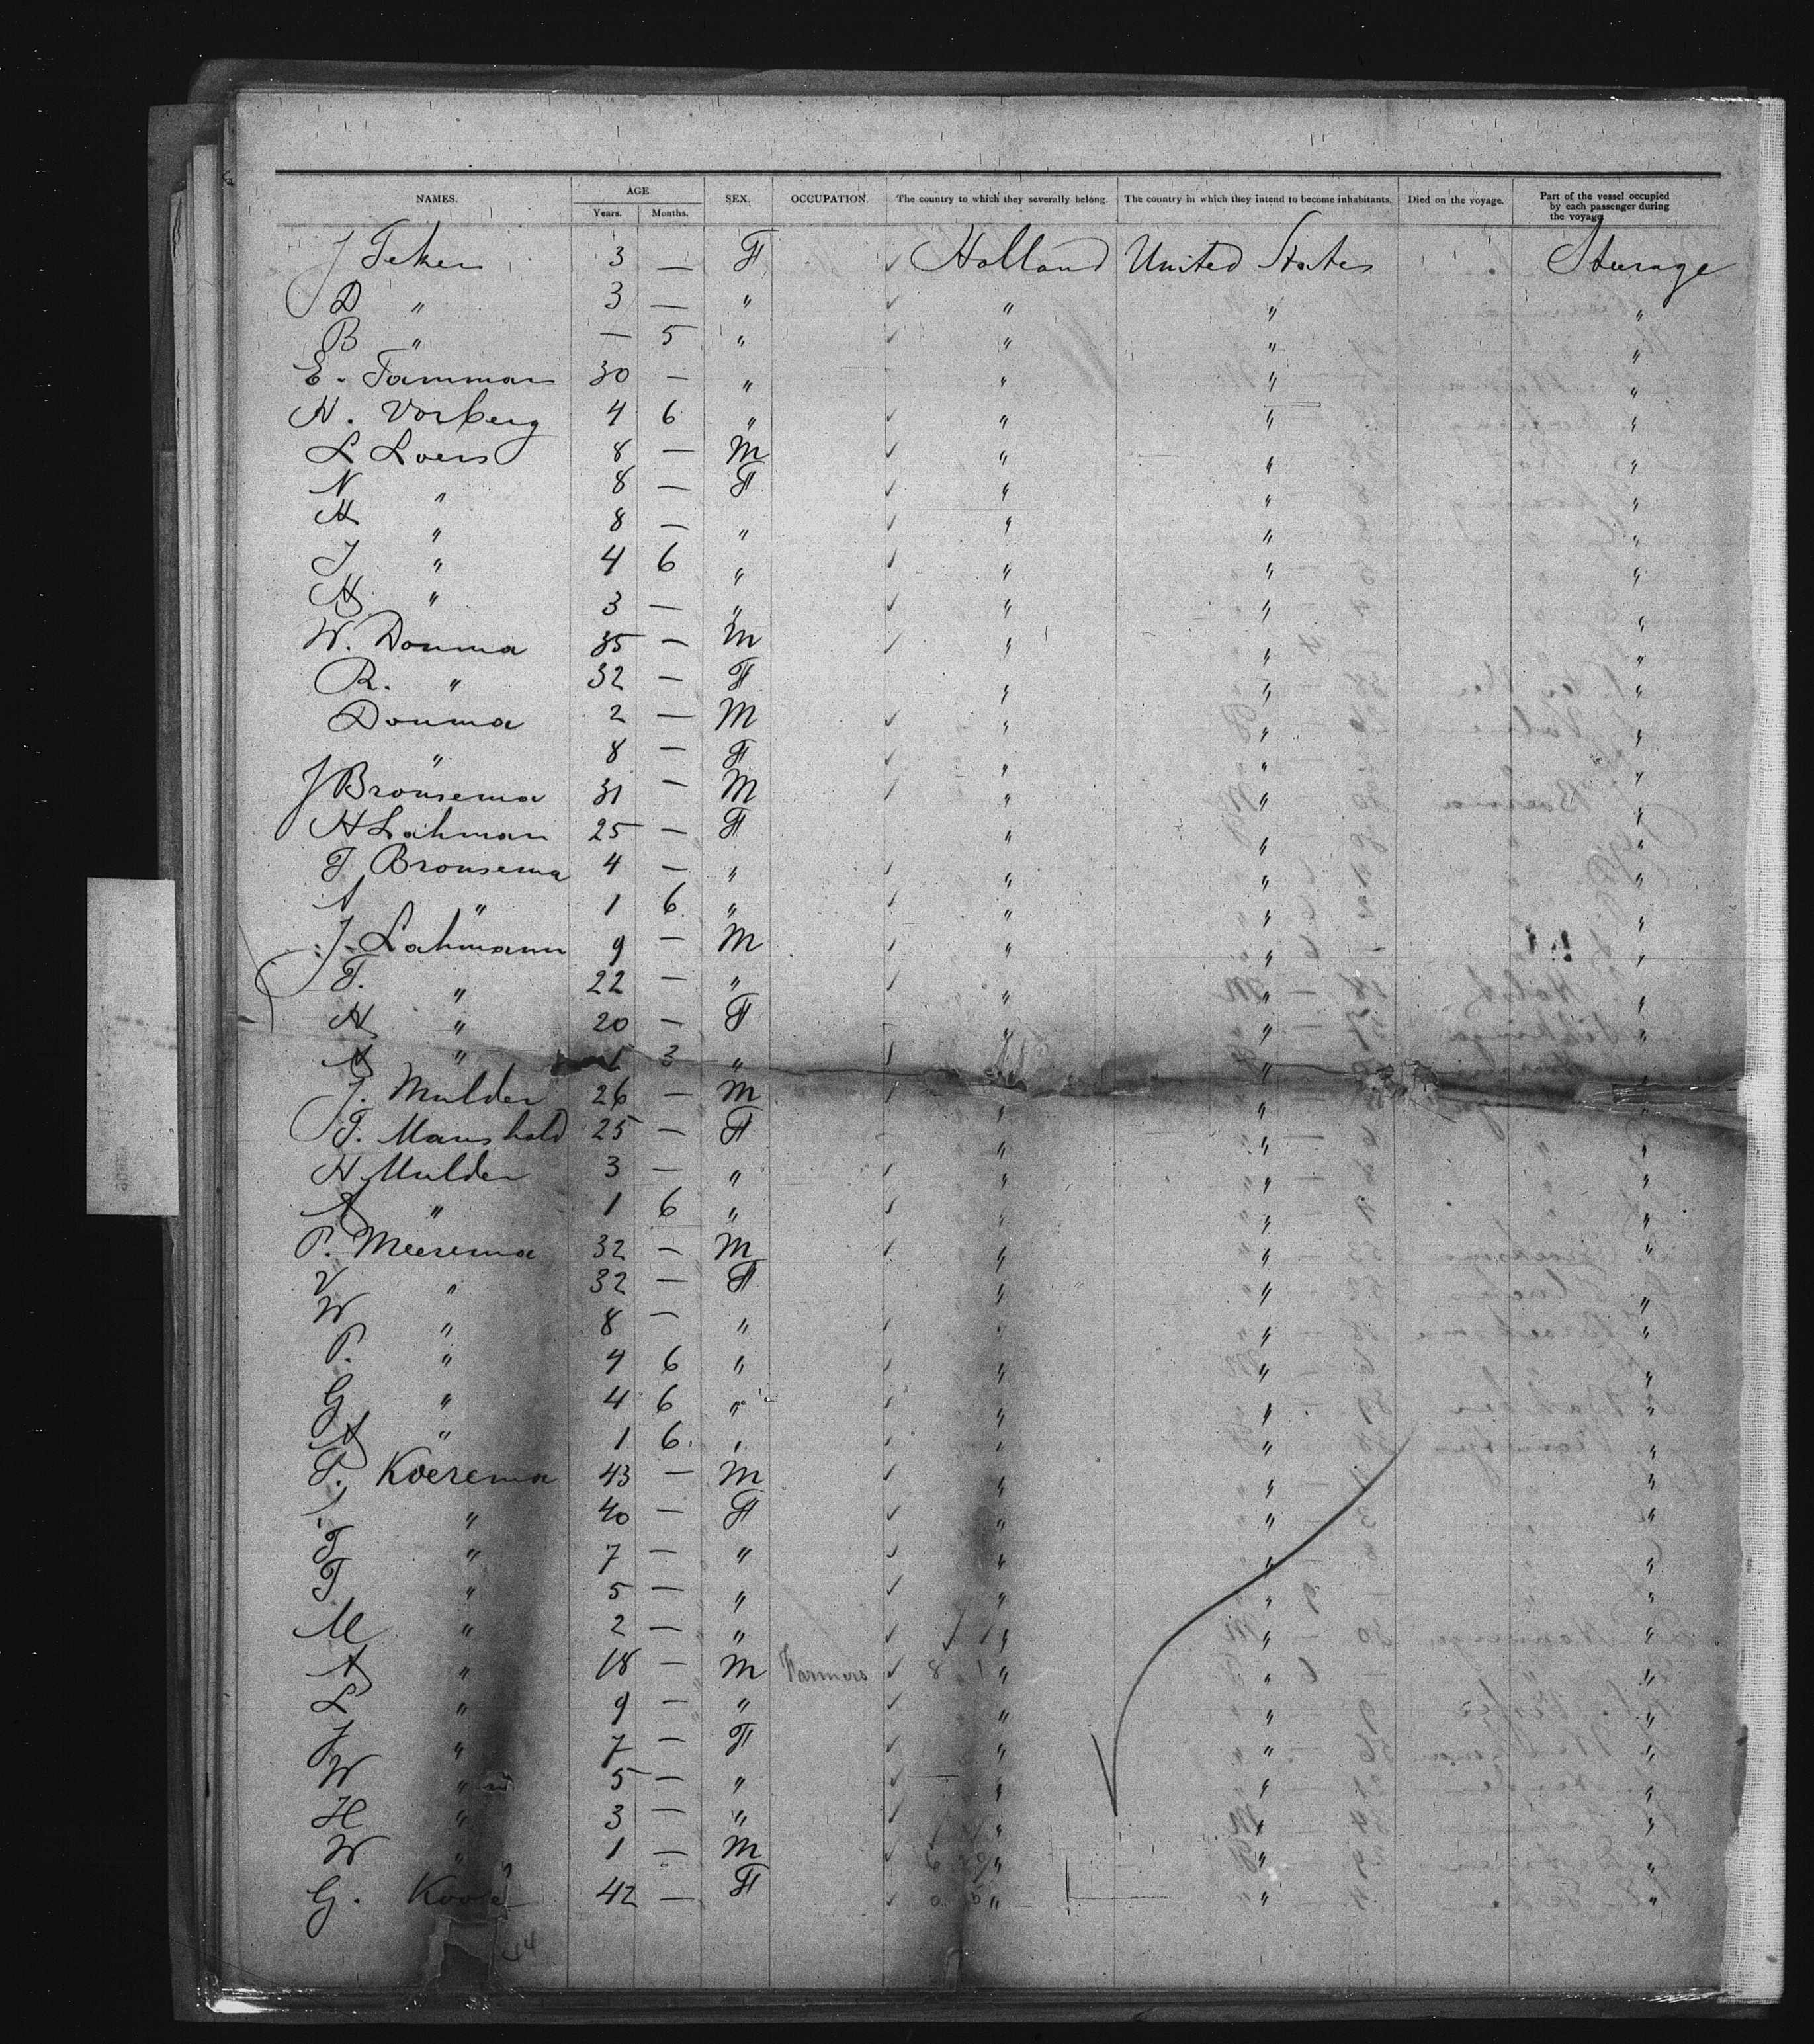 NAMES. AGE Years. Months. SEX. OCCUPATION. The country to which they severally belong. The country in which they intend to become inhabitants. Died on the voyage. Part of the vessel occupied by each passenger during the voyage
J Teken 3 — F Holland United States Steerage
D " 3 — " " " "
B " — 5 " " " "
E. Tamman 30 — " " " "
H. Vorberg 4 6 " " " "
L Loers 8 — M " " "
N " 8 — F " " "
H " 8 — " " " "
J " 4 6 " " " "
A " 3 — " " " "
W. Douma 35 — M " " "
R. " 32 — F " " "
Douma 2 — M " " "
" 8 — F " " "
J Bronsema 31 — M " " "
H Lahman 25 — F " " "
T Bronsema 4 — " " " "
A " 1 6 " " " "
J. Lahmann 9 — M " " "
T. " 22 — " " " "
H " 20 — F " " "
A " 1 3 " " "
J. Mulder 26 — M " " "
T. Manshold 25 — F " " "
H Mulder 3 — " " " "
A " 1 6 " " " "
P. Meerema 32 — M " " "
V " 32 — F " " "
W " 8 — " " " "
P. " 4 6 " " " "
G " 4 6 " " " "
A " 1 6 " " " "
T. Koerema 43 — M " " "
" 40 — F " " "
T " 7 — " " " "
T " 5 — " " " "
M " 2 — " " " "
A " 18 — M Farmers " " "
L " 9 — " " " "
J " 7 — F " " "
W " 5 — " " " "
H " 3 — " " " "
W " 1 — M " " "
G. 42 — F " " "
44